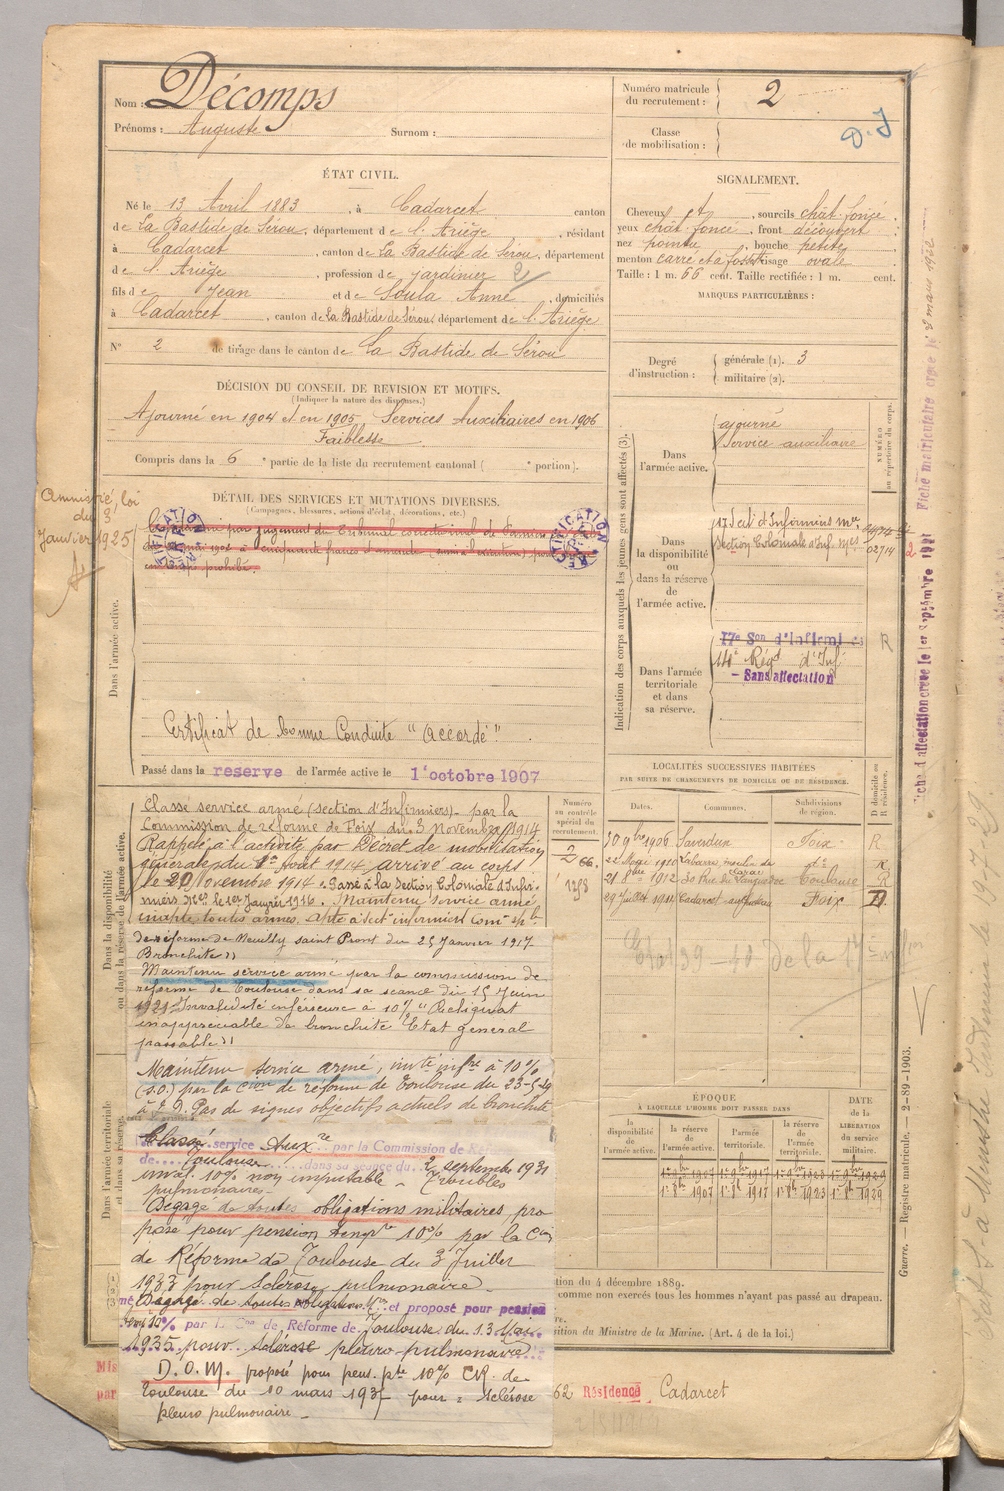 Nom : Décomps
Prénoms : Auguste Surnom :
Numéro matricule du recrutement : 2
Classe de mobilisation :
D. J
ÉTAT CIVIL.
Né le 13 Avril 1883, à Cadarcet canton
de La Bastide de Sérou, département de l'Ariège, résidant
à Cadarcet, canton de La Bastide de Sérou, département
de l'Ariège, profession de jardinier
fils de Jean et de Soula Anne, domiciliés
à Cadarcet, canton de La Bastide de Sérou, département de l'Ariège
N° 2 de tirage dans le canton de La Bastide de Sérou
SIGNALEMENT.
Cheveux ct, sourcils chât. foncé
yeux chât. foncé, front découvert
nez pointu, bouche petite
menton carré et à fossette visage ovale
Taille : 1 m. 66 cent. Taille rectifiée : 1 m. cent.
MARQUES PARTICULIÈRES :
Degré d'instruction : générale (1). 3
militaire (2).
DÉCISION DU CONSEIL DE REVISION ET MOTIFS.
(Indiquer la nature des dispenses.)
Ajourné en 1904 et en 1905 Services Auxiliaires en 1906
Faiblesse
Compris dans la 6e partie de la liste du recrutement cantonal ( e portion).
DÉTAIL DES SERVICES ET MUTATIONS DIVERSES.
(Campagnes, blessures, actions d'éclat, décorations, etc.)
Amnistié, loi
du 3
Janvier 1925
par jugement du Tribunal correctionnel de
RECTIFICATION
RECTIFICATION
Dans l'armée active.
Certificat de bonne Conduite "accordé"
Passé dans la reserve de l'armée active le 1 octobre 1907
Indication des corps auxquels les jeunes gens sont affectés (3).
NUMÉRO au répertoire du corps.
Dans l'armée active.
ajourné
Service auxiliaire
Dans la disponibilité ou dans la réserve de l'armée active.
17 Sect d'Infirmiers mres
Section Coloniale d'Inf. mres 02714
Dans l'armée territoriale et dans sa réserve.
17e Son d'Infirmiers R
14e Régt d'Inf
- Sans affectation
Fiche d'affectation créée le 1er Septembre 1921
Fiche matriculaire créée le 8 mars 1922
LOCALITÉS SUCCESSIVES HABITÉES
PAR SUITE DE CHANGEMENTS DE DOMICILE OU DE RÉSIDENCE.
Dates. Communes. Subdivisions de région. D domicile ou R résidence.
30 9bre 1906 Saverdun Foix R
22 Mai 1910 Labarre, moulin de de R
21 8bre 1912 30 Rue du Languedoc Toulouse R
Cadarcet Foix D
Dans la disponibilité ou dans la réserve de l'armée active.
Numéro au contrôle spécial du recrutement.
2 66.
1358
Classé service armé (section d'Infirmiers) par la
Commission de réforme de Foix du 3 novembre 1914
Rappelé à l'activité par Décret de mobilisation
générale du 1er Août 1914 arrivé au corps
le 20 Novembre 1914. Passé à la Section Coloniale d'Infir-
miers mres le 1er Janvier 1916. Maintenu service armé
inapte toutes armes. apte à sect infirmiers Comon sple
de réforme de Neuilly saint Front du 25 Janvier 1917
Bronchite
Maintenu service armé par la commission de
réforme de Toulouse dans sa séance du 15 Juin
1921 Invalidité inférieure à 10% "Reliquat
inappréciable de bronchite Etat général
passable"
Maintenu service armé, invté infre à 10%
(s.o.) par la Cion de réforme de Toulouse du 23-5-29
Pas de signes objectifs actuels de bronchite
Dans l'armée territoriale et dans sa réserve.
Classé service Auxre par la Commission de Réforme
de Toulouse dans sa séance du 2 septembre 1931
inval. 10% non imputable - Troubles
pulmonaires -
Dégagé de toutes obligations militaires pro
posé pour pension tempre 10% par la Cion
de Réforme de Toulouse du 3 Juillet
1933 pour Sclérose pulmonaire
Dégagé de toutes obligations Mres et proposé pour pension
10% par la Con de Réforme de Toulouse du 13 Mai
1935 pour sclérose pleuro-pulmonaire
D. O. M. proposé pour pens. pte 10% CR. de
Toulouse du 10 mars 1937 pour : sclérose
pleuro pulmonaire -
ÉPOQUE
À LAQUELLE L'HOMME DOIT PASSER DANS
DATE de la LIBÉRATION du service militaire.
la disponibilité de l'armée active. la réserve de l'armée active. l'armée territoriale. la réserve de l'armée territoriale.
1er 8bre 1907 1er 8bre 1917 1er 8bre 1923 1er 8bre 1929
tion du 4 décembre 1889.
comme non exercés tous les hommes n'ayant pas passé au drapeau.
ition du Ministre de la Marine. (Art. 4 de la loi.)
Guerre. — Registre matricule. — 2-89-1903.
Mis
par
62 Résidence Cadarcet